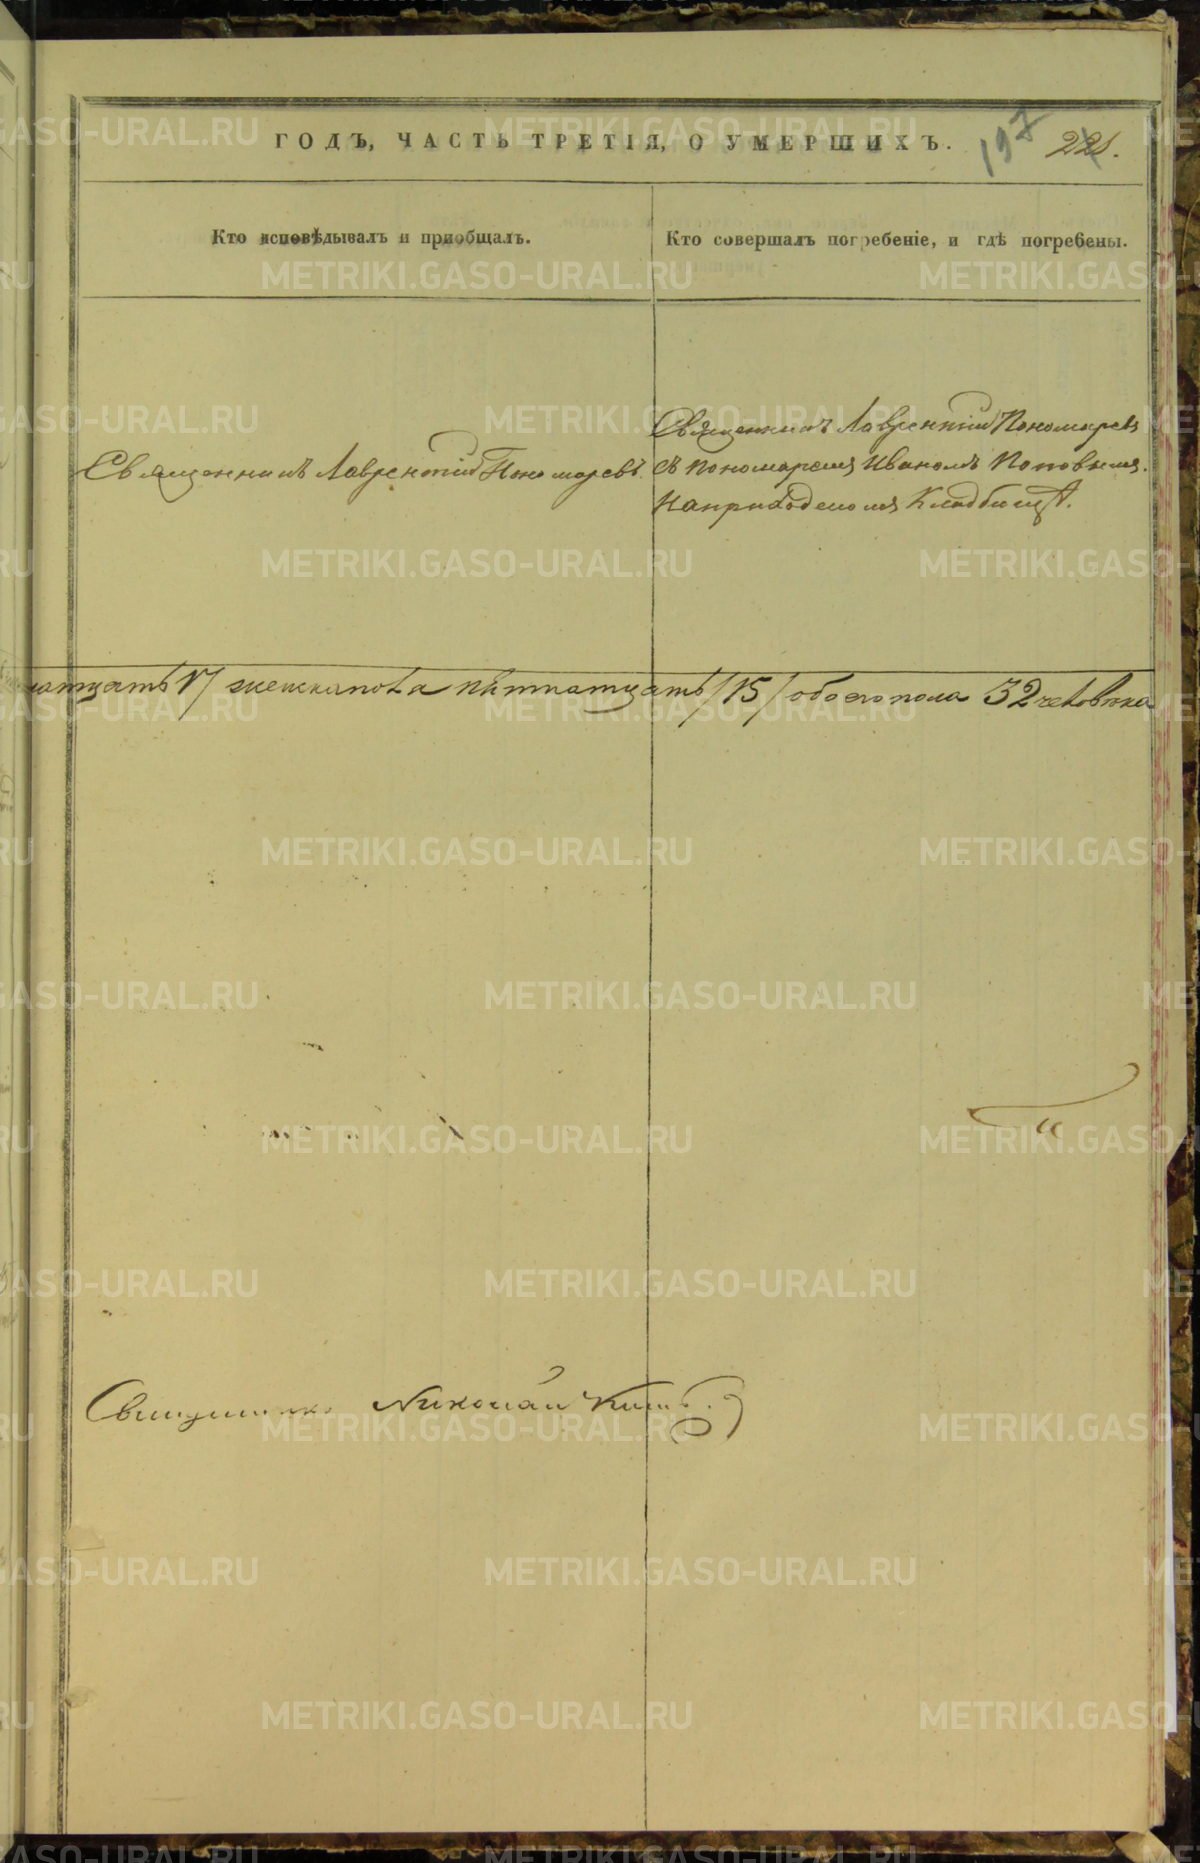 ГОДЪ, ЧАСТЬ ТРЕТІЯ, О УМЕРШИХЪ.
197
221.
Кто исповѣдывалъ и приобщалъ.
Кто совершалъ погребеніе, и гдѣ погребены.
Священникъ Лаврентій Пономаревъ
Священникъ Лаврентій Пономаревъ
съ пономаремъ Иваномъ Поповымъ.
На приходскомъ Кладбищѣ.
натцать 17/ женскапола пятнатцать /15/ обоего пола 32 человѣка
Священникъ Николай
METRIKI.GASO-URAL.RU